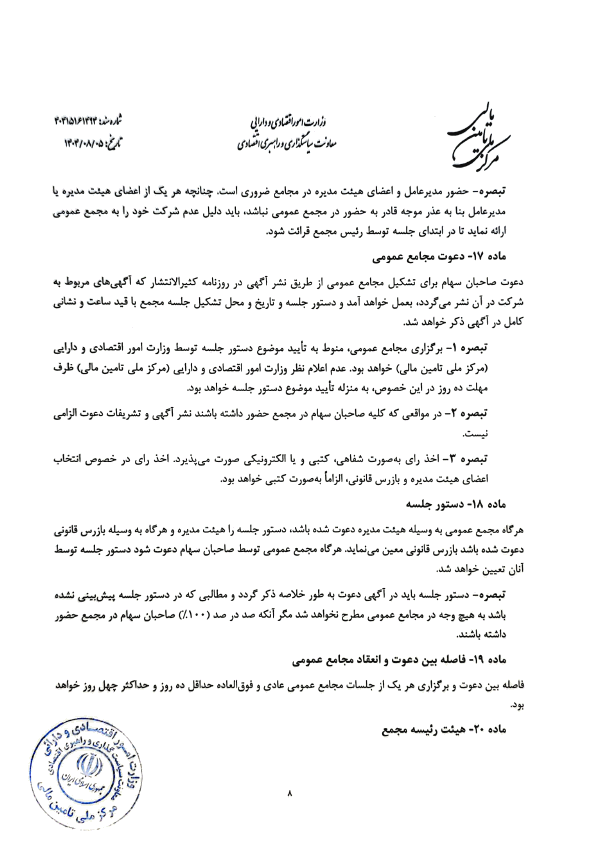 مرکز ملی تامین مالی
وزارت امور اقتصادی و دارایی
معاونت سیاستگذاری و راهبری اقتصادی
شماره سند: ۴۰۴۱۵۱۶۱۴۹۴
تاریخ: ۱۴۰۴/۰۸/۰۵
تبصره- حضور مدیرعامل و اعضای هیئت مدیره در مجامع ضروری است. چنانچه هر یک از اعضای هیئت مدیره یا
مدیرعامل بنا به عذر موجه قادر به حضور در مجمع عمومی نباشد، باید دلیل عدم شرکت خود را به مجمع عمومی
ارائه نماید تا در ابتدای جلسه توسط رئیس مجمع قرائت شود.
ماده ۱۷- دعوت مجامع عمومی
دعوت صاحبان سهام برای تشکیل مجامع عمومی از طریق نشر آگهی در روزنامه کثیرالانتشار که آگهی‌های مربوط به
شرکت در آن نشر می‌گردد، بعمل خواهد آمد و دستور جلسه و تاریخ و محل تشکیل جلسه مجمع با قید ساعت و نشانی
کامل در آگهی ذکر خواهد شد.
تبصره ۱- برگزاری مجامع عمومی، منوط به تأیید موضوع دستور جلسه توسط وزارت امور اقتصادی و دارایی
(مرکز ملی تامین مالی) خواهد بود. عدم اعلام نظر وزارت امور اقتصادی و دارایی (مرکز ملی تامین مالی) ظرف
مهلت ده روز در این خصوص، به منزله تأیید موضوع دستور جلسه خواهد بود.
تبصره ۲- در مواقعی که کلیه صاحبان سهام در مجمع حضور داشته باشند نشر آگهی و تشریفات دعوت الزامی
نیست.
تبصره ۳- اخذ رای به‌صورت شفاهی، کتبی و یا الکترونیکی صورت می‌پذیرد. اخذ رای در خصوص انتخاب
اعضای هیئت مدیره و بازرس قانونی، الزاماً به‌صورت کتبی خواهد بود.
ماده ۱۸- دستور جلسه
هرگاه مجمع عمومی به وسیله هیئت مدیره دعوت شده باشد، دستور جلسه را هیئت مدیره و هرگاه به وسیله بازرس قانونی
دعوت شده باشد بازرس قانونی معین می‌نماید. هرگاه مجمع عمومی توسط صاحبان سهام دعوت شود دستور جلسه توسط
آنان تعیین خواهد شد.
تبصره- دستور جلسه باید در آگهی دعوت به طور خلاصه ذکر گردد و مطالبی که در دستور جلسه پیش‌بینی نشده
باشد به هیچ وجه در مجامع عمومی مطرح نخواهد شد مگر آنکه صد در صد (۱۰۰٪) صاحبان سهام در مجمع حضور
داشته باشند.
ماده ۱۹- فاصله بین دعوت و انعقاد مجامع عمومی
فاصله بین دعوت و برگزاری هر یک از جلسات مجامع عمومی عادی و فوق‌العاده حداقل ده روز و حداکثر چهل روز خواهد
بود.
ماده ۲۰- هیئت رئیسه مجمع
وزارت امور اقتصادی و دارائی
معاونت سیاست گذاری و راهبری اقتصادی
جمهوری اسلامی ایران
مرکز ملی تامین مالی
۸